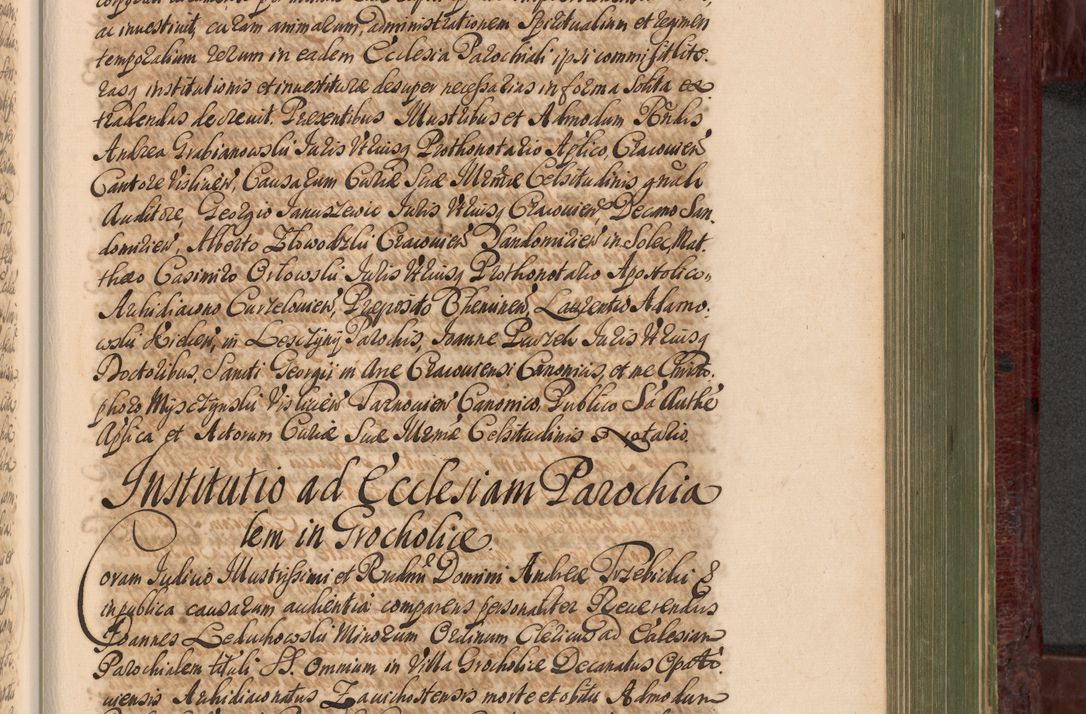 ac investivit, curam animarum, administrationem Spiritualium et regimen
temporalium rerum in eadem Ecclesia Parochiali ipsi commisit lite-
rasq institutionis et investituræ desuper necessarias in forma solita ex
tradendas decrevit. Præsentibus Illustribus et Admodum Rndis
Andrea Grabianowski Juris Vtriusq Prothonotario Aplico, Cracovien
Cantore Vislicien, Causarum Curiæ Suæ Illrmæ Celsitudinis gnali
Auditore Georgio Januszewic Juris Vtriusq Cracovien Decano San-
domirien, Alberto Zlowodzki Cracovien Sandomirien in Solec, Mat
thæo Casimiro Orlowski Juris Vtriusq Prothonotario Apostolico,
Archidiacono Curzelovien, Præposito Bheninen, Laurentio Adamo-
wski Kielcen, in Lesczyny Parochis, Joanne Pewzek Juris Vtriusq
Doctoribus, Sancti Georgii in Arce Cracoviensi Canonicis, et me Christo-
phoro Mysczynski Vislicien Tarnovien Canonico, Publico Sa Authe
Aplica et Actorum Curiæ Suæ Illrmæ Celsitudinis Notario.
Institutio ad Ecclesiam Parochia
lem in Grocholice.
Coram Judicio Illustrissimi et Rndmi Domini Andreæ Trzebicki &
in publica causarum audientia comparens personaliter Reverendus
Joannes Leduchowski Minorum Ordinum Clericus ad Ecclesiam
Parochialem tituli SS. Omnium in Villa Grocholice Decanatus Opato
viensis Archidiaconatus Zawichostensis morte et obitu Admodum